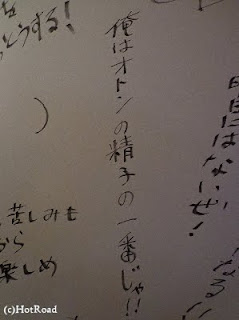 日にはないぜ!
俺はオトンの精子の一番じゃ!!
とうする!
苦しみも
から
楽しめ
(c)HotRoad